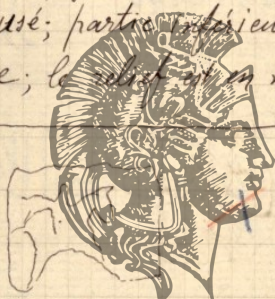 usé; partie inférieu
e; le relief est en